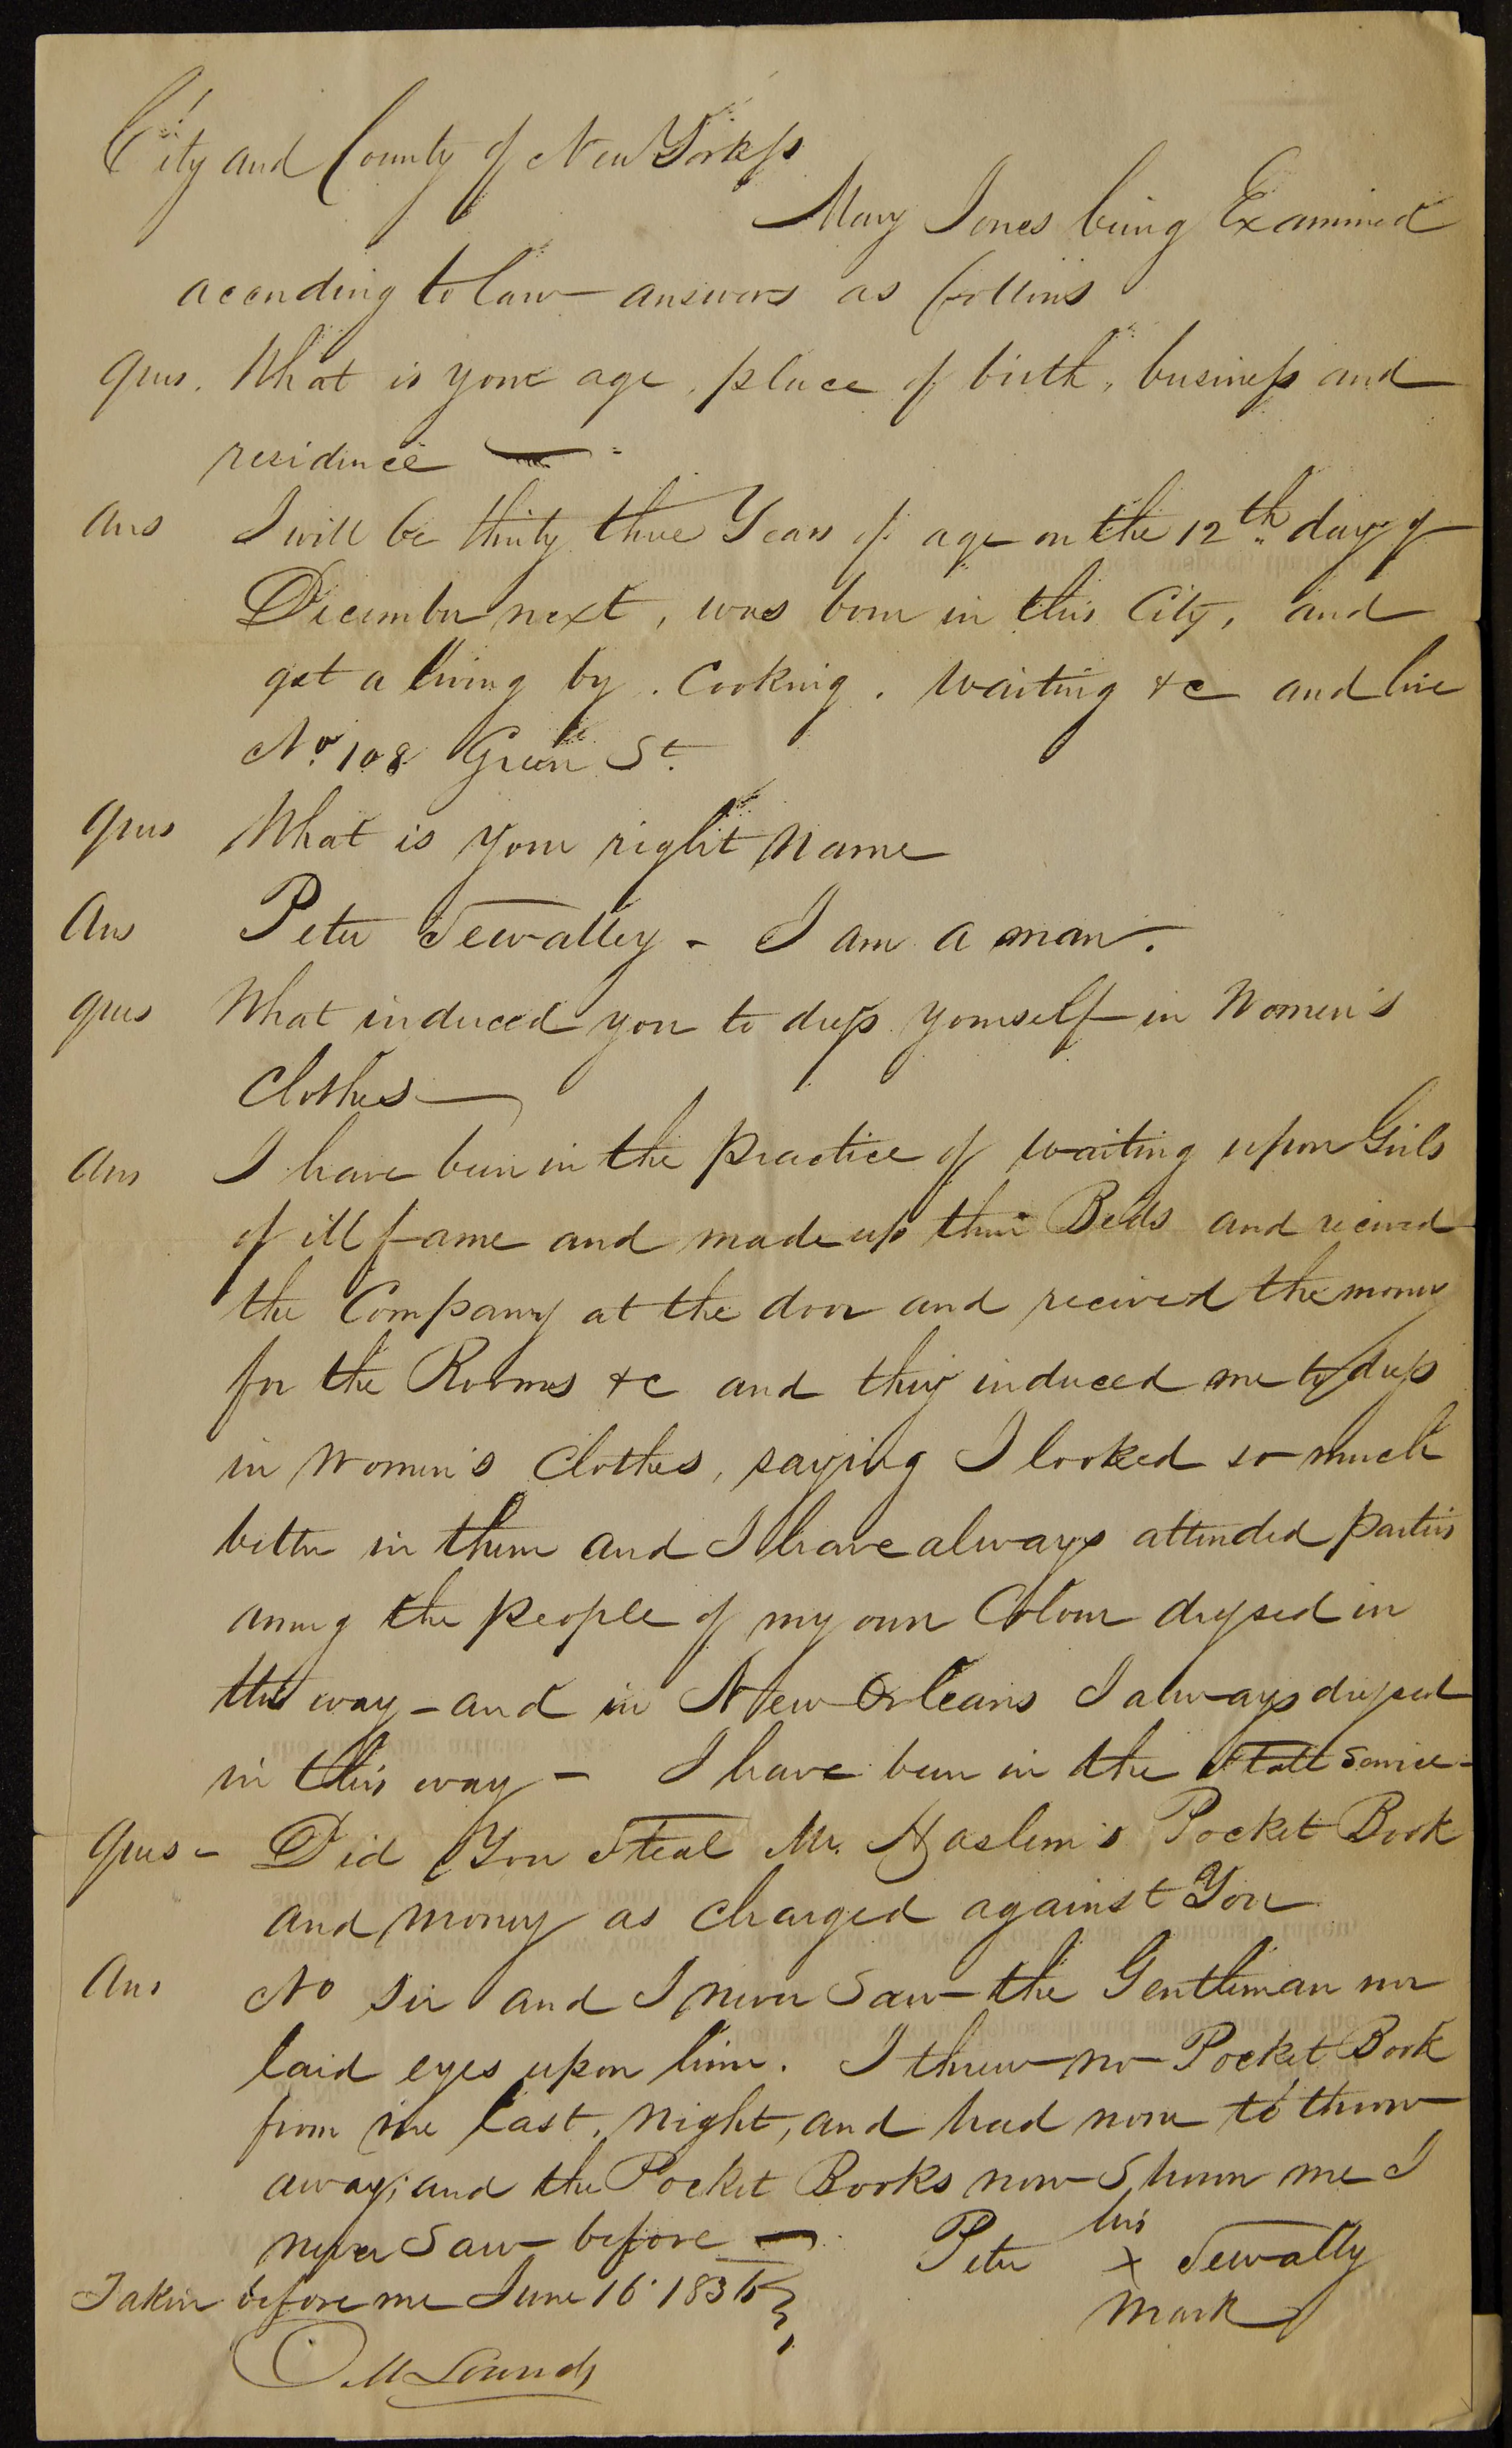 City and County of New York ss
Mary Jones being Examined
according to law answers as follows
Ques. What is your age, place of birth, business and
residence
Ans I will be thirty three Years of age on the 12th day of
December next, was born in this City, and
get a living by Cooking, waiting &c and live
No. 108 Green St.
Ques What is your right name
Ans Peter Sewally - I am a man.
Ques What induced you to dress yourself in Women's
Clothes
Ans I have been in the practice of waiting upon Girls
of ill fame and made up their Beds and received
the Company at the door and received the money
for the Rooms &c and they induced me to dress
in Women's Clothes, saying I looked so much
better in them and I have always attended parties
among the people of my own Colour dressed in
this way - and in New Orleans I always dressed
in this way - I have been in the State Service -
Ques - Did You Steal Mr. Haslem's Pocket Book
and money as charged against You
Ans No Sir and I never Saw the Gentleman nor
laid eyes upon him. I threw no Pocket Book
from me last night, and had none to throw
away; and the Pocket Books now Shown me I
never Saw before
his
Peter x Sewally
mark
Taken before me June 16 1836
O. M. Lownds